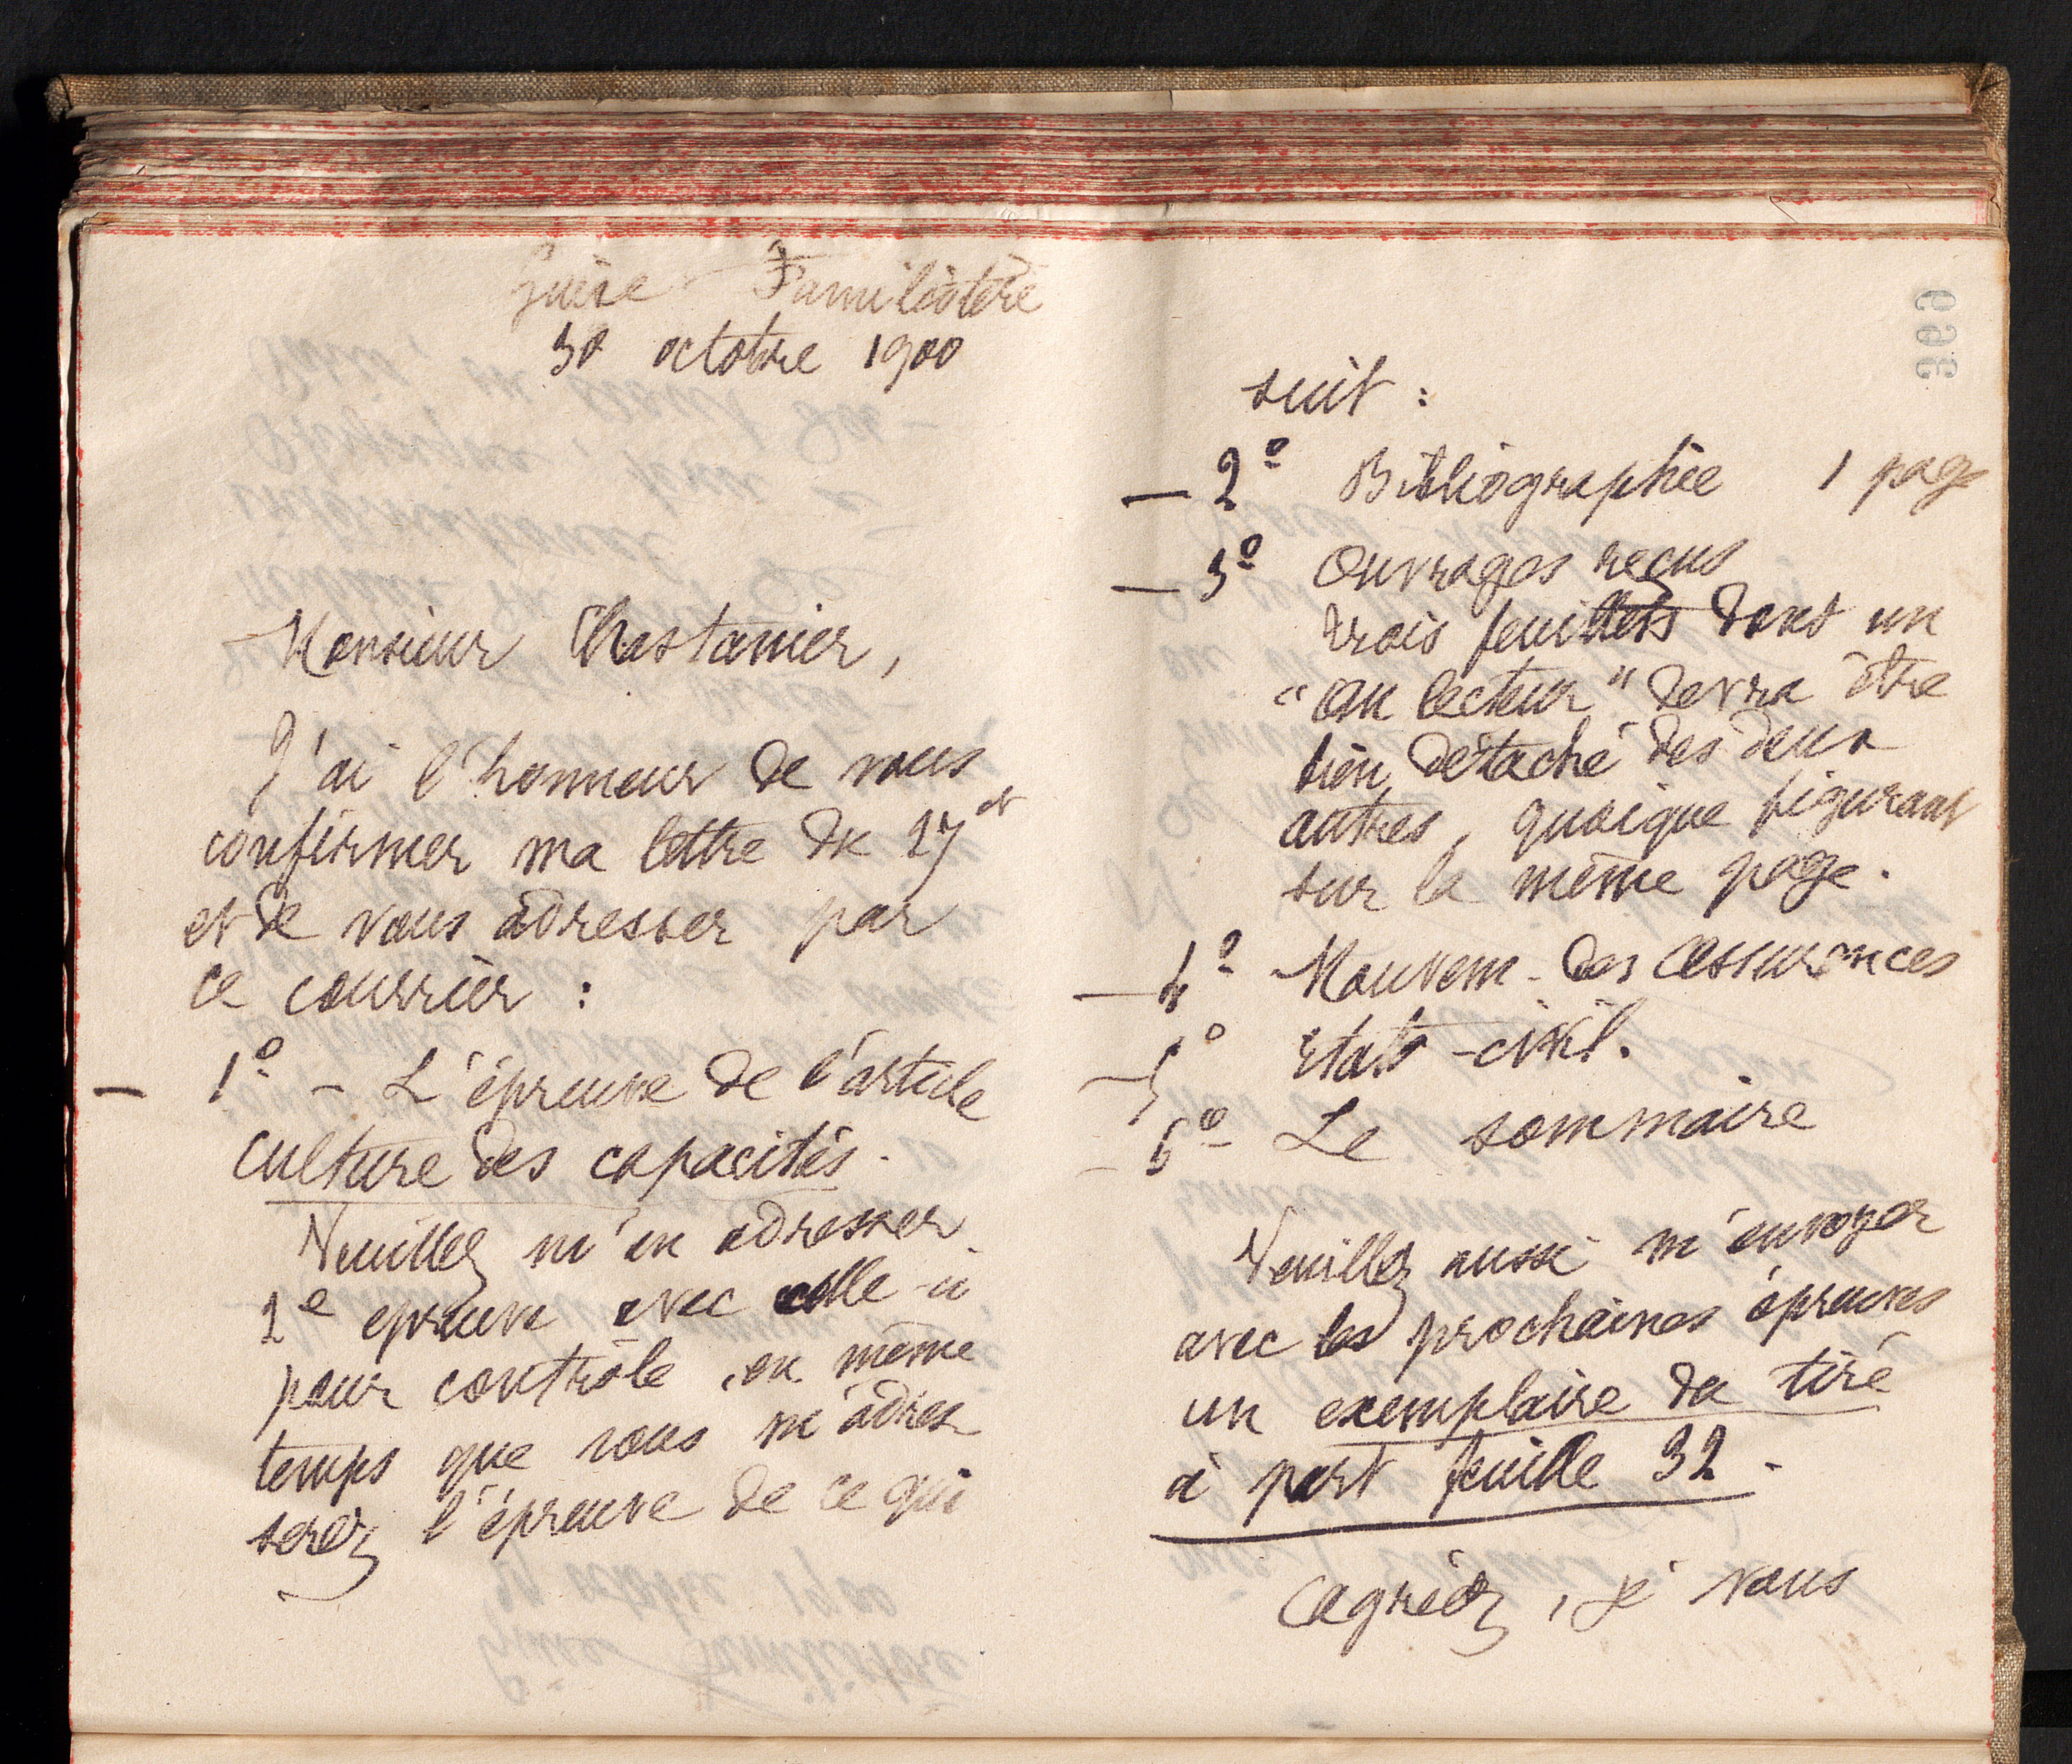 Guise Familistère
30 octobre 1900
Monsieur Chastanier,
J'ai l'honneur de vous
confirmer ma lettre du 27 ct
et de vous adresser par
ce courrier :
— 1º - L'épreuve de l'article
culture des capacités.
Veuillez m'en adresser
2e epreuve avec celle-ci
pour contrôle, en même
temps que vous m'adres
serez l'épreuve de ce qui
399
suit :
— 2º Bibliographie 1 page
— 3º Ouvrages reçus
trois feuillets dont un
"au lecteur" devra être
bien détaché des deux
autres, quoique figurant
sur la même page.
— 4º Mouvem- des assurances
— 5º état-civil.
— 6º Le sommaire
Veuillez aussi m'envoyer
avec les prochaines épreuves
un exemplaire du tiré
à part feuille 32.
Agréez, je vous